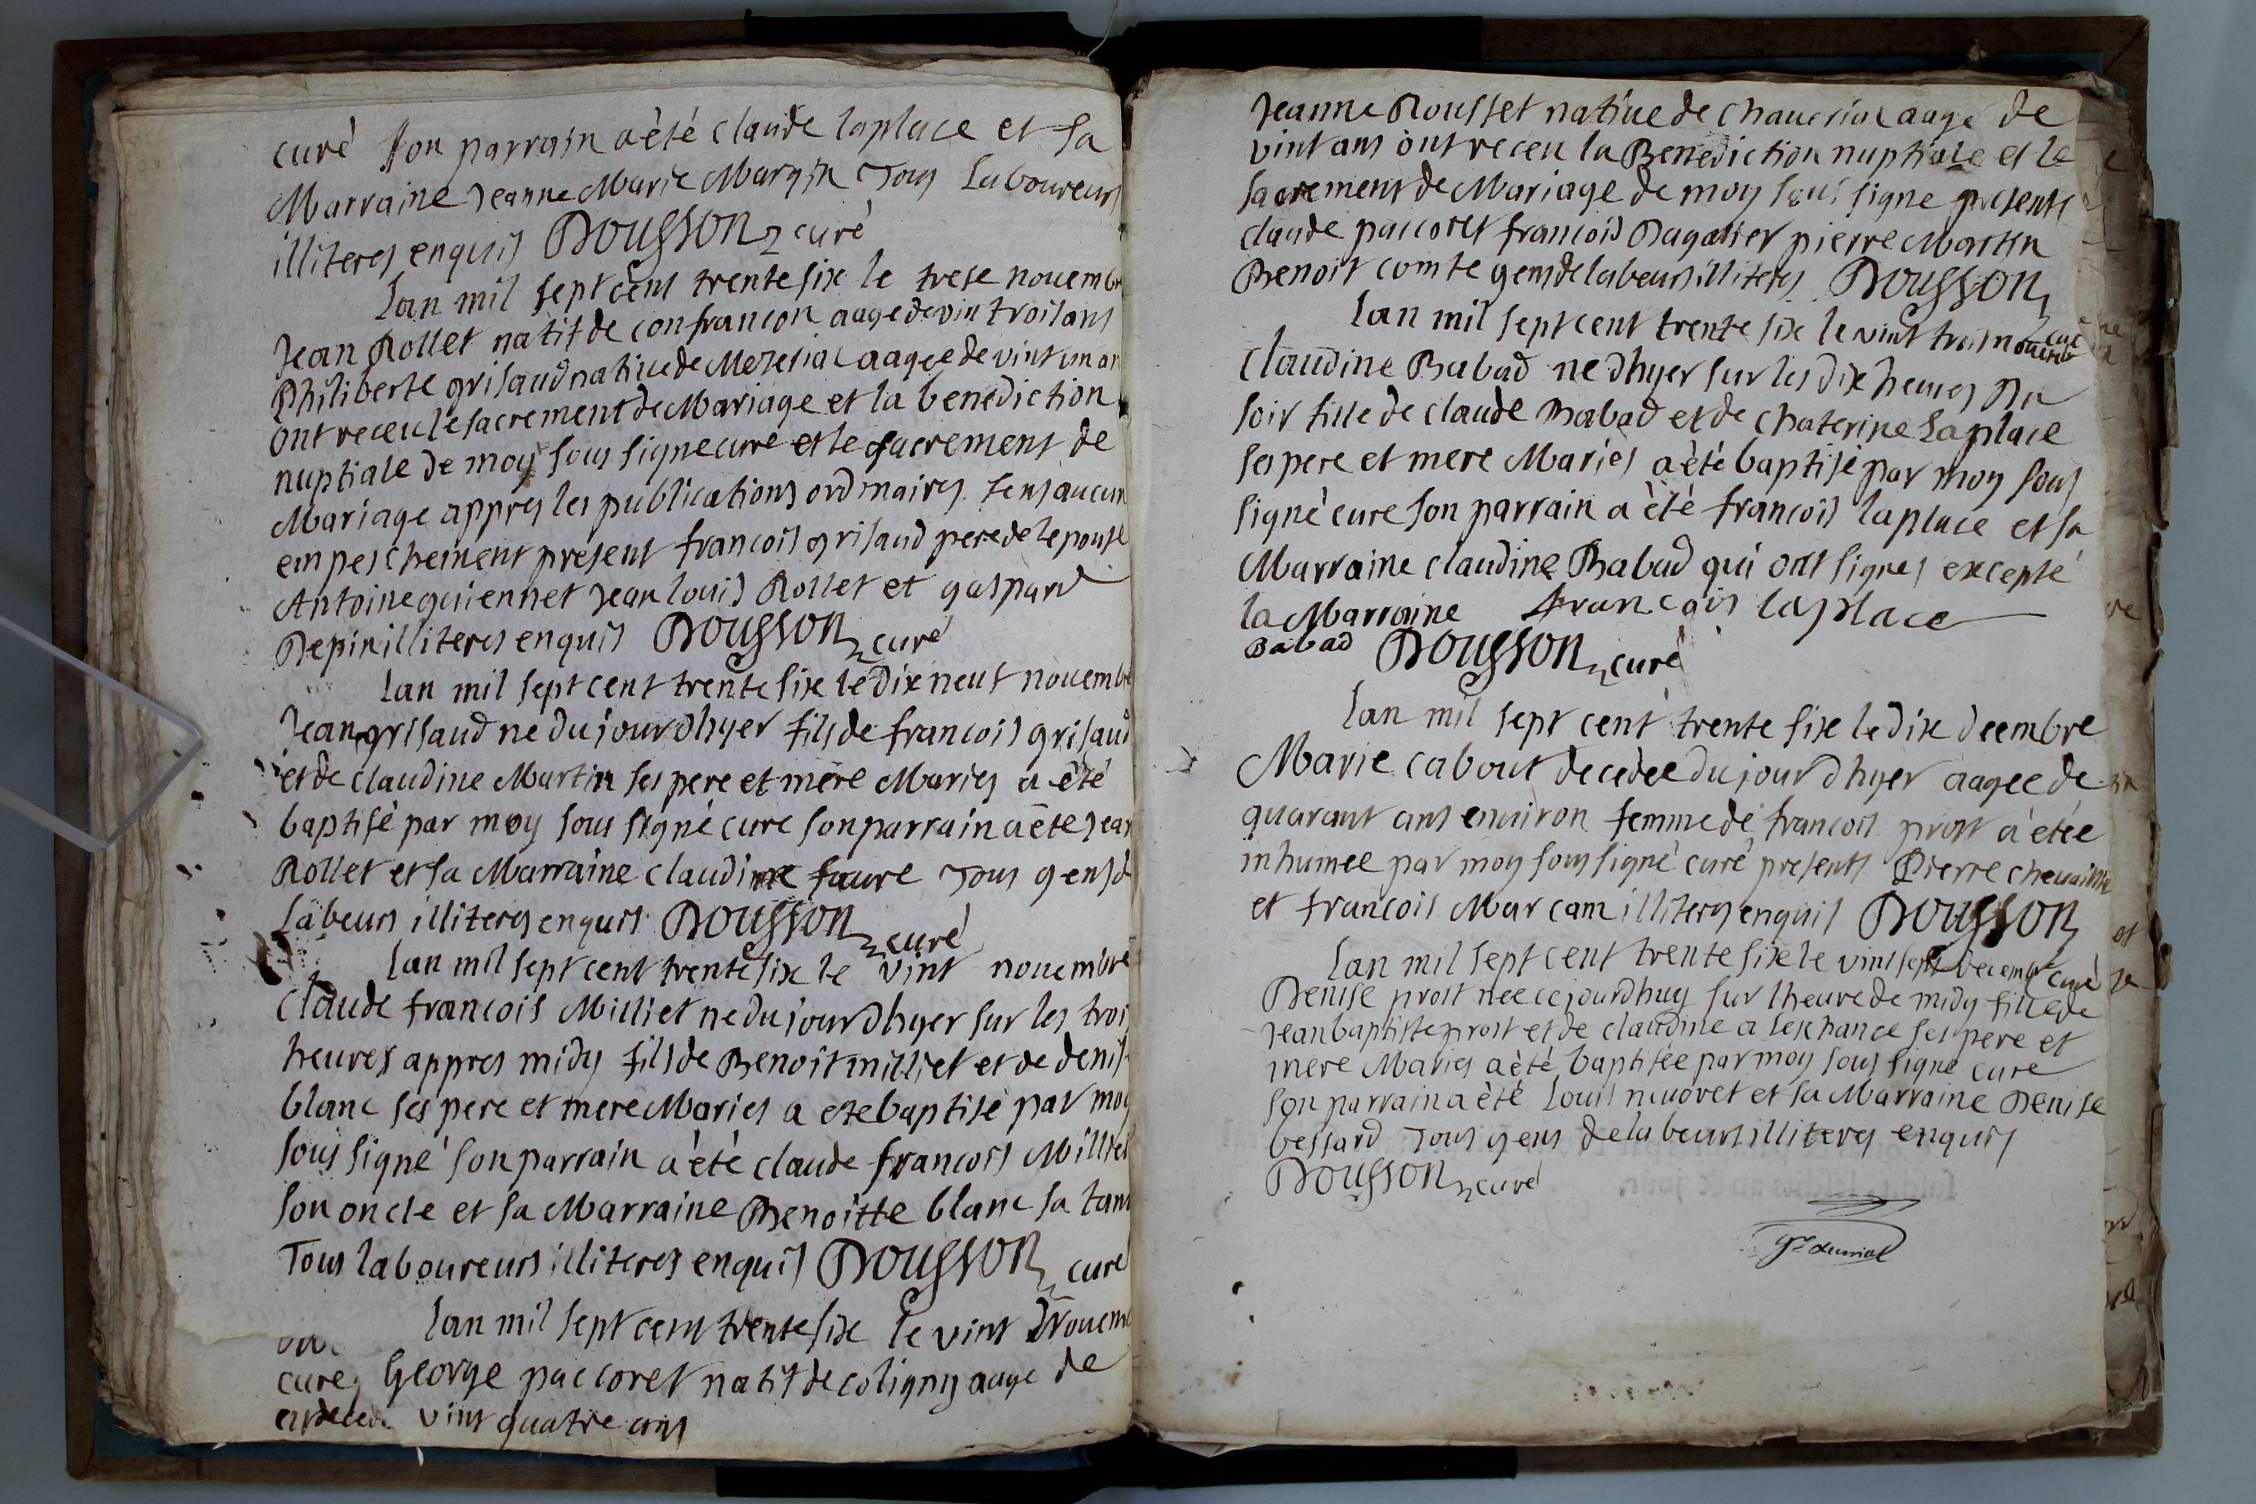 curé son parrain a èté claude laplace et sa
Marraine Jeanne Marie Margin Tous Laboureurs
illiteres enquis DOUSSON curé
Lan mil sept cens trente six le trese nouembre
Jean Rollet natif de confrancon aage de vin trois ans
Philiberte grisaud natiue de Meserial aagee de vint un an
ont receu le sacrement de Mariage et la benediction
nuptiale de moy sous signe curé et le sacrement de
Mariage appres les publications ordinaires sens aucun
empeschement present francois grisaud pere de lepouse
Antoine guiennet Jean louis Rollet et gaspard
Depin illiteres enquis DOUSSON curé
Lan mil sept cent trente six le dix neuf nouembre
Jean grisaud né du jour dhyer fils de francois grisaud
et de claudine Martin ses pere et mere Mariés a èté
baptisé par moy sous signé curé son parrain a èté Jean
Rollet et sa Marraine claudine faure Tous gens de
labeurs illiteres enquis DOUSSON curé
Lan mil sept cent trente six le vint nouembre
Claude francois Milliet né du jour dhyer sur les trois
heures appres midy fils de Benoit milliet et de denise
blanc ses pere et mere Mariés a eté baptisé par moy
sous signé son parrain a èté claude francois Milliet
son oncle et sa Marraine Benoitte blanc sa tante
Tous laboureurs illiteres enquis DOUSSON curé
Lan mil sept cent trente six le vint nouem
cure George paccoret natif de coligny aagé de
vint quatre ans
Jeanne Rousset natiue de chaueriat aagé de
vint ans ont receu la Benediction nuptiale et le
sacrement de Mariage de moy sous signe presents
claude paccoret francois Dagallier pierre Martin
Benoit comte gens de labeurs illiteres DOUSSON
curé
Lan mil sept cent trente six le vint trois nouembre
Claudine Babad né dhyer sur les dix heures Du
soir fille de claude Babad et de chaterine Laplace
ses pere et mere Mariés a èté baptisé par moy sous
signé cure son parrain a èté francois laplace et sa
Marraine claudine Babad qui ont signes excepté
la Marraine francois laplace
Babad DOUSSON curé
Lan mil sept cent trente six le dix deembre
Marie cabout decedee du jour dhyer aagee de
quarant ans enuiron femme de francois prost a etée
inhumee par moy sous signé curé presents Pierre cheuaillie
et francois Marcam illiteres enquis DOUSSON
curé
Lan mil sept cent trente six le vint sept decembre
Denise prost nee ce jourdhuy sur lheure de midy fille de
Jean baptiste prost et de claudine a lexchance ses pere et
mere Mariés a èté baptisée par moy sous signe cure
son parrain a èté Louis nuoret et sa Marraine Denise
bessard Tous gens de labeurs illiteres enquis
DOUSSON curé